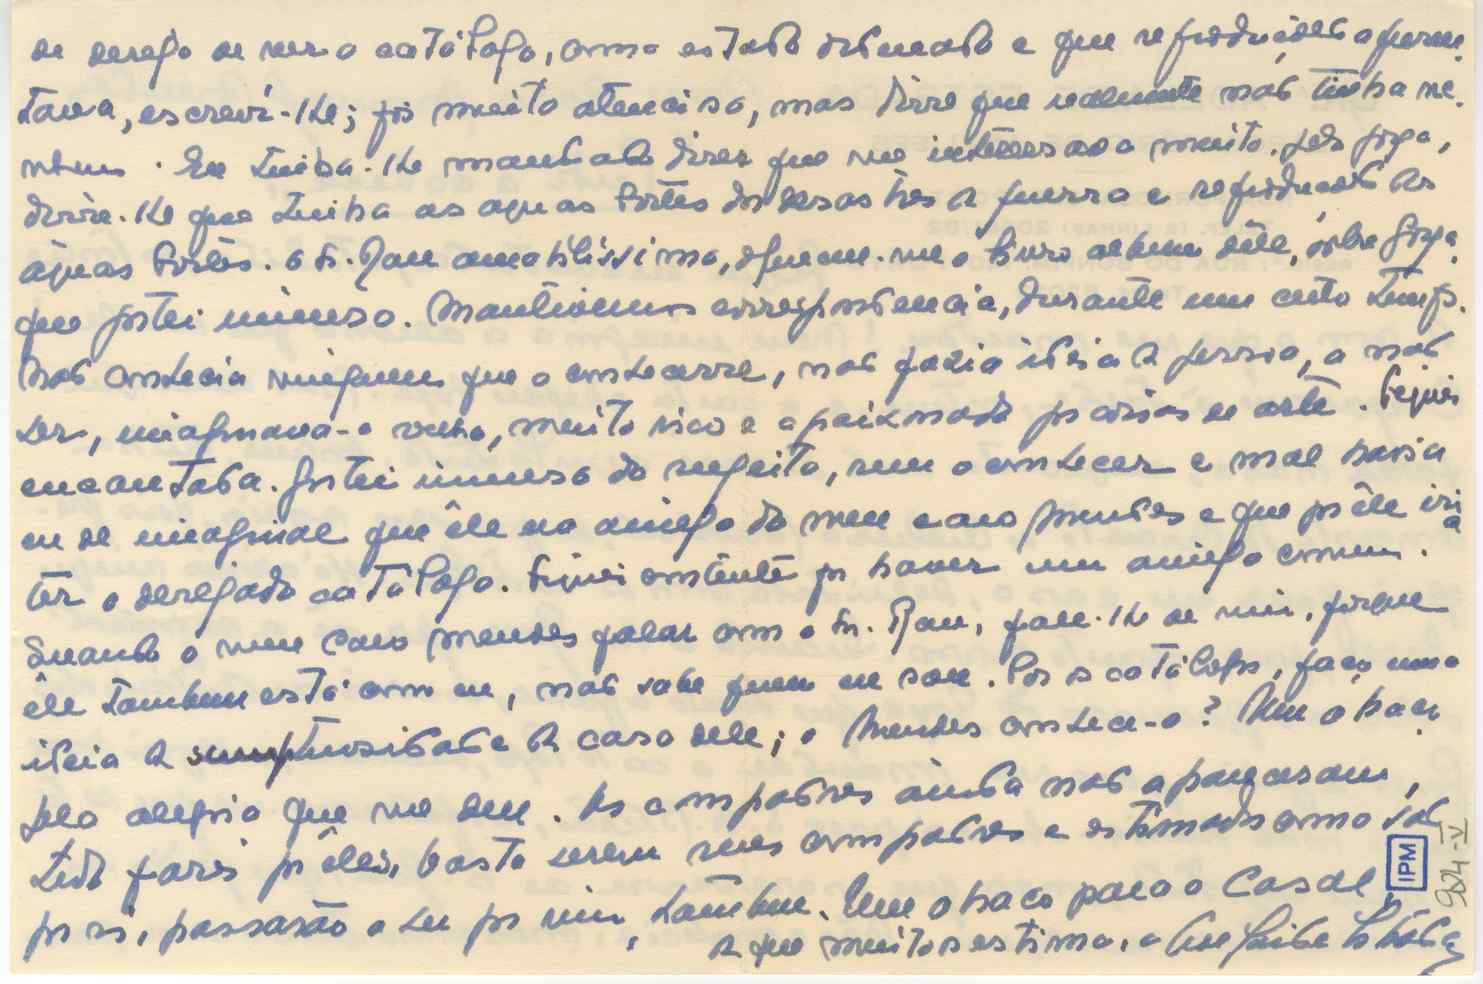 de desejo de ver o catálogo, como estado ordenado e que reproduções apresen-
tava, escrevi-lhe; foi muito atencioso, mas disse que realmente não tinha ne-
nhum. Eu tinha-lhe mandado dizer que me interessava muito pelo Goya,
disse-lhe que tinha as águas fortes dos desastres da guerra e reproducões das
águas fortes. O Sr. Rau amabilíssimo, ofereceu-me o livro album dêle, sobre Goya,
que gostei imenso. Mantivemos correspondencia, durante um certo tempo.
Não conhecia ninguem que o conhecesse, não fazia ideia da pessoa, a não
ser, imaginava-o velho, muito rico e apaixonado por coisas de arte. Fiquei
encantada. Gostei imenso do sugeito, sem o conhecer e mal havia
eu de imaginar que êle era amigo do meu caro Mendes e que por êle iria
ter o desejado catálogo. Fiquei contente por haver um amigo comum.
Quando o meu caro Mendes falar com o Sr. Rau, fale-lhe de mim, porque
êle tambem está como eu, não sabe quem eu sou. Por os catálogos, faço uma
ideia da sumptuosidade da casa dele; o Mendes conhece-o? Um abraço
pela alegria que me deu. Os compadres ainda não apareceram,
tudo farei por êles, basta serem seus compadres e estimados como são
por si, passarão a ser por mim, tambem. Um abraço para o Casal,
da que muito os estima, a
IPM
9024-V